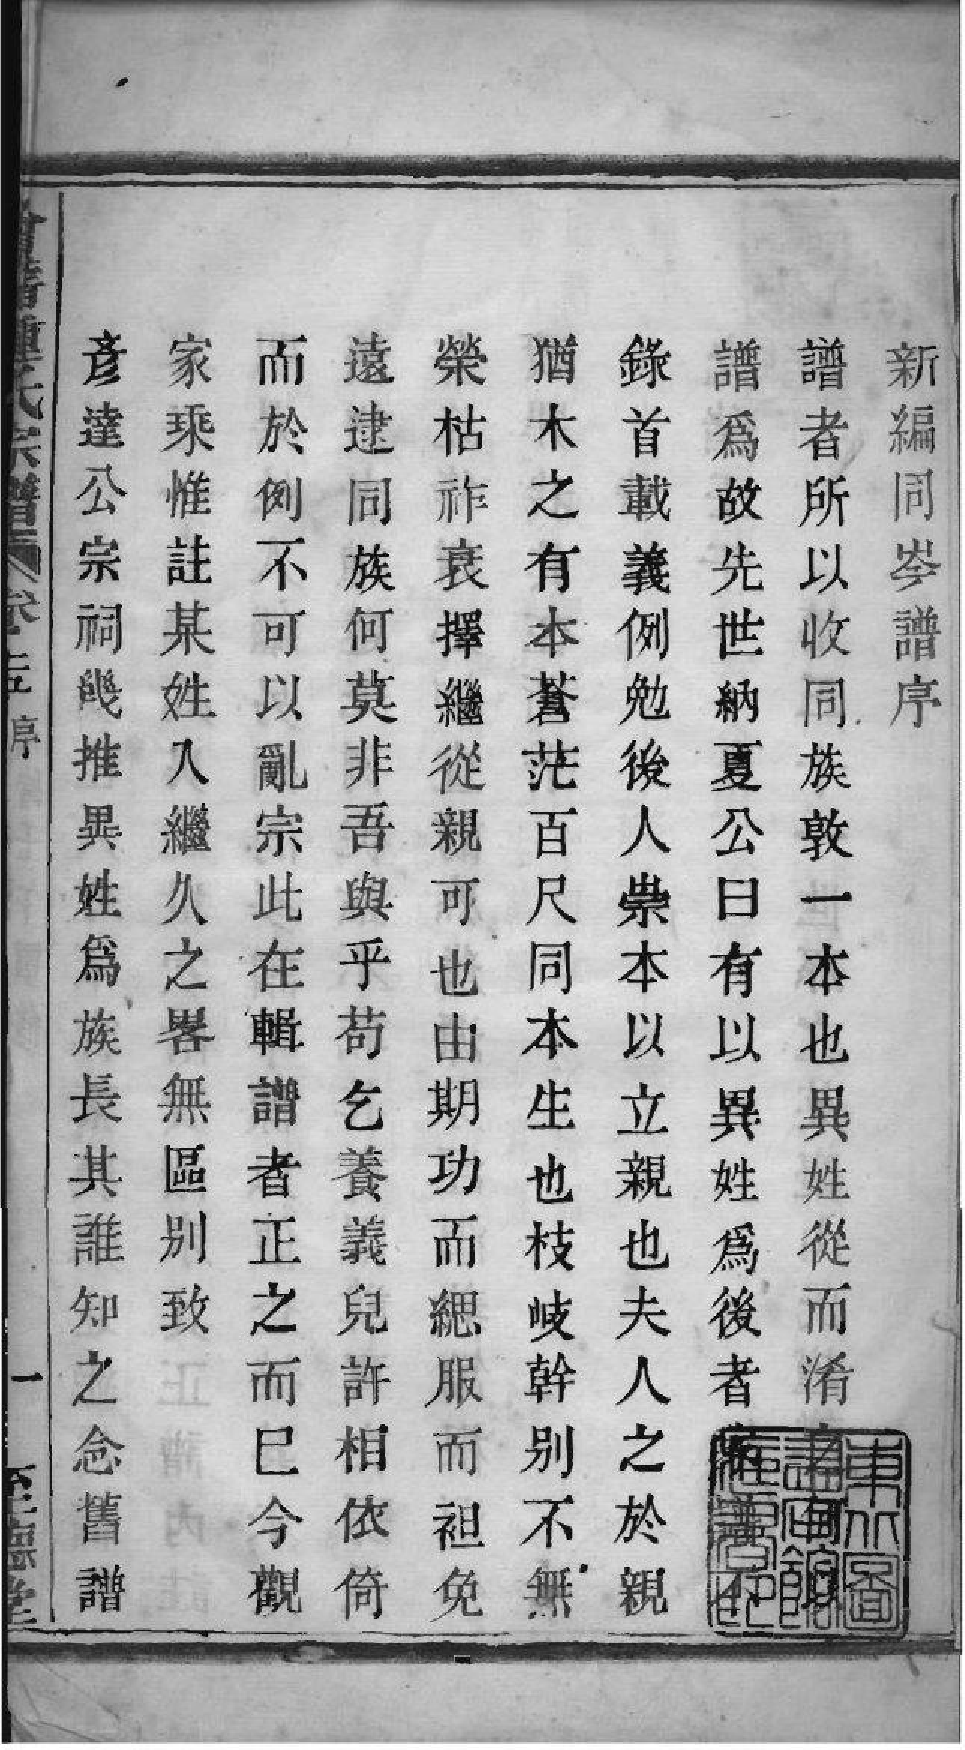 新編同岑譜序
譜者所以收同族敦一本也異姓從而淆
譜爲故先世納夏公曰有以異姓爲後者不
錄首載義例勉後人崇本以立親也夫人之於親
猶木之有本蒼茫百尺同本生也枝岐幹別不無
榮枯祚衰擇繼從親可也由期功而緦服而袒免
遠逮同族何莫非吾與乎苟乞養義兒許相依倚
而於例不可以亂宗此在輯譜者正之而已今觀
家乘惟註某姓入繼久之畧無區別致
彥達公宗祠幾推異姓爲族長其誰知之念舊譜
氏宗譜 序 一 至德堂
東北圖書館